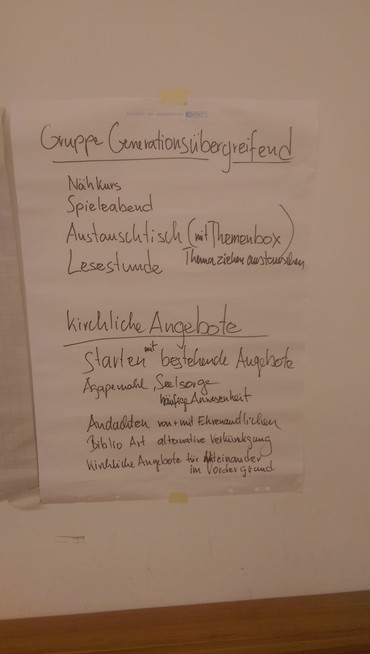 Gruppe Generationsübergreifend
Nähkurs
Spieleabend
Austauschtisch (mit Themenbox)
Lesestunde Thema ziehen austauschen
kirchliche Angebote
Starten mit bestehende Angebote
Agapemahl, Seelsorge
häufige Anwesenheit
Andachten von + mit Ehrenamtlichen
Biblio Art alternative Verkündigung
kirchliche Angebote für Miteinander
im Vordergrund